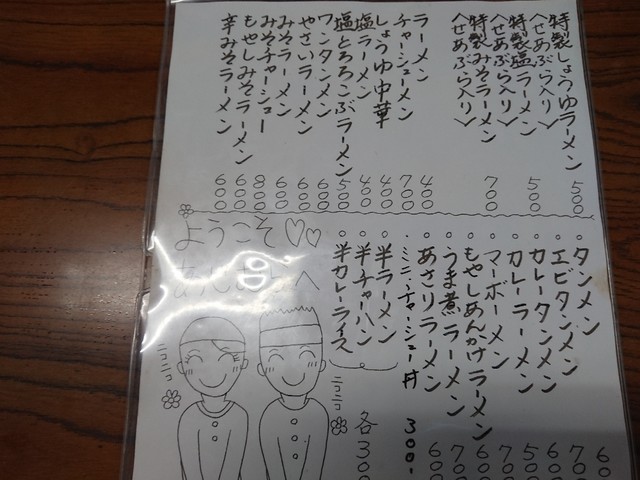 特製しょうゆラーメン 500
(せあぶら入り)
特製塩ラーメン 500
(せあぶら入り)
特製みそラーメン 700
(せあぶら入り)
ラーメン 400
チャーシューメン 700
しょうゆ中華 400
塩ラーメン 400
塩とろろこぶラーメン 500
ワンタンメン 600
やさいラーメン 600
みそラーメン 600
みそチャーシュー 800
もやしみそラーメン 600
辛みそラーメン 600
。タンメン 600
。エビタンメン 700
。カレータンメン 600
。カレーラーメン 500
。マーボーメン 700
。もやしあんかけラーメン 600
。うま煮ラーメン 700
。あさりラーメン 600
・ミニチャーシュー丼 300.-
。半ラーメン
。半チャーハン
。半カレーライス
各300
ようこそ♡♡
へ
ニコニコ
ニコニコ